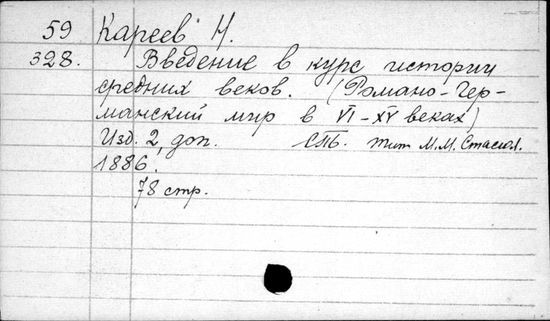 59 Кареев Н.
328. Введение в курс истории
средних веков. (Романо-Гер-
манский мир в VI-XV веках)
Изд. 2, доп. СПБ. тип М.М. Стасюл.
1886.
78 стр.